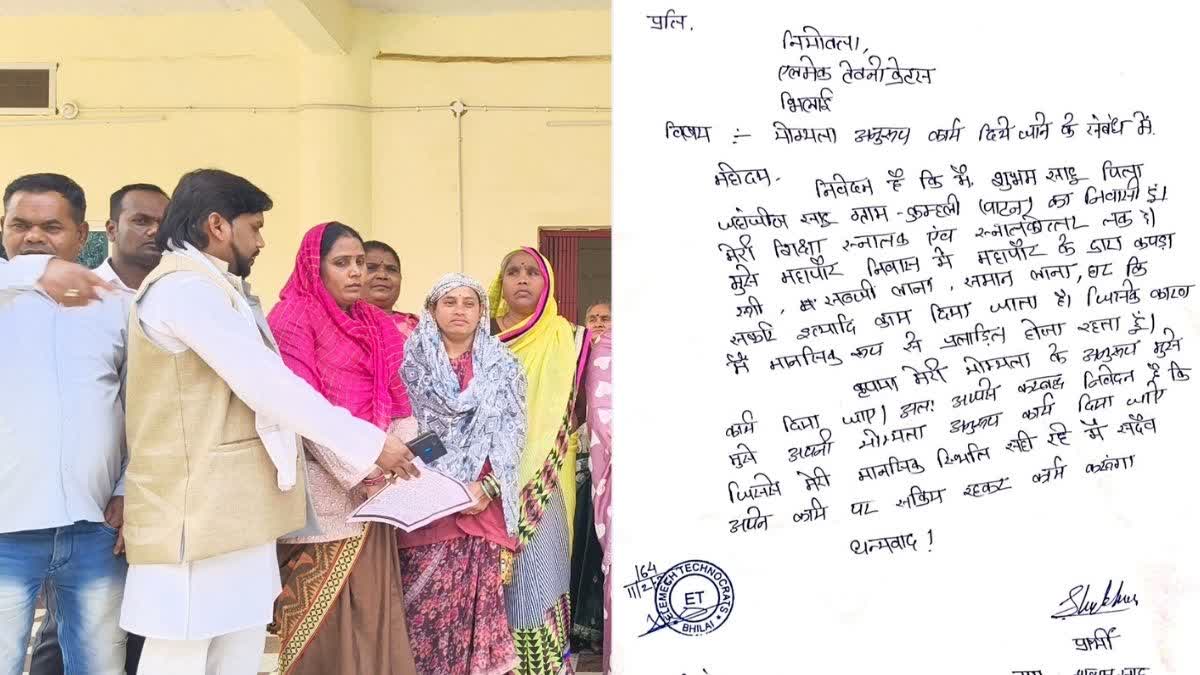 प्रति,
नियोक्ता,
एलमेक टेक्नोक्रेट्स
भिलाई
विषय :- योग्यता अनुरूप कार्य दिये जाने के संबंध में.
महोदय,
निवेदन है कि मैं, शुभम साहू पिता
साहू ग्राम - कुम्हली (पाटन) का निवासी हूं।
मेरी शिक्षा स्नातक एवं स्नातकोत्तर तक है।
मुझे महापौर निवास में महापौर के द्वारा कपड़ा
सब्जी लाना, समान लाना, घर कि
सफाई इत्यादि काम दिया जाता है। जिसके कारण
मैं मानसिक रूप से प्रताड़ित होता रहता हूं।
कृपया मेरी योग्यता के अनुरूप मुझे
कार्य दिया जाए। अतः आपसे करबद्ध निवेदन है कि
मुझे अपनी योग्यता अनुरूप कार्य दिया जाए
जिससे मेरी मानसिक स्थिति सही रहे मैं सदैव
अपने कार्य पर सक्रिय रहकर कार्य करूंगा
धन्यवाद !
164
ELEMECH TECHNOCRATS
ET
BHILAI
प्रार्थी